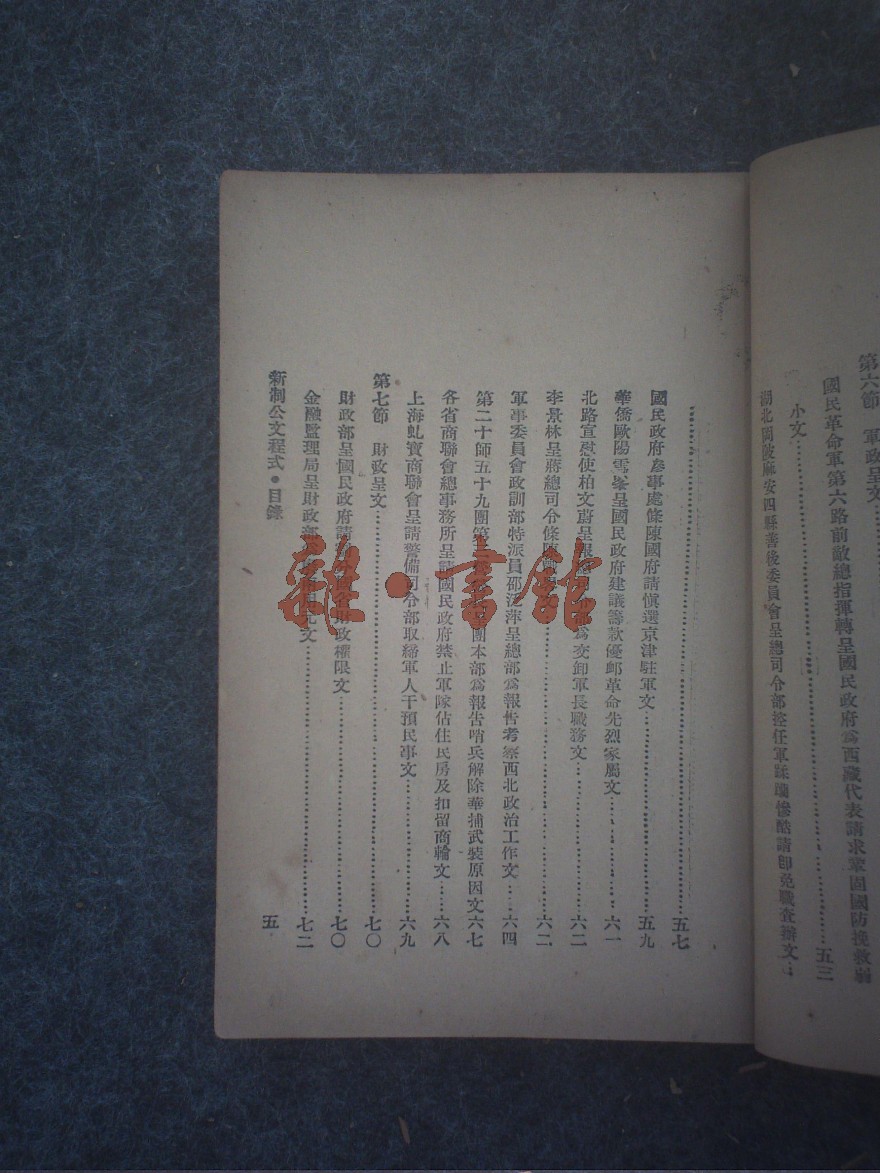 第六節　軍政呈文
國民革命軍第六路前敵總指揮轉呈國民政府爲西藏代表請求鞏固國防挽救弱
小文……五三
湖北岡陂麻安四縣善後委員會呈總司令部控任軍蹂躪慘酷請卽免職查辦文
……五七
國民政府參事處條陳國府請愼選京津駐軍文……五九
華僑歐陽雪峯呈國民政府建議籌款優邮革命先烈家屬文……六一
北路宣慰使柏文蔚呈報總司令部爲交卸軍長職務文……六二
李景林呈蔣總司令條陳……六二
軍事委員會政訓部特派員邵泛萍呈總部爲報告考察西北政治工作文……六四
第二十師五十九團第……團本部爲報告哨兵解除華捕武裝原因文六七
各省商聯會總事務所呈請國民政府禁止軍隊佔住民房及扣留商輪文……六八
上海虬寶商聯會呈請警備司令部取締軍人干預民事文……六九
第七節　財政呈文……七〇
財政部呈國民政府請……財政權限文……七〇
金融監理局呈財政部……文……七二
新制公文程式•目錄
五
雜•書館